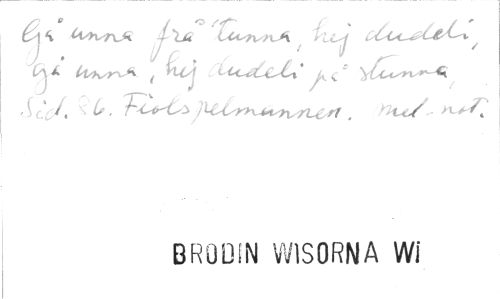 Gå unna från tunna, hej dudeli,
gå unna, hej dudeli på stunna,
Sid. 86. Fiolspelmannen. mel-not.
BRODIN WISORNA Wi